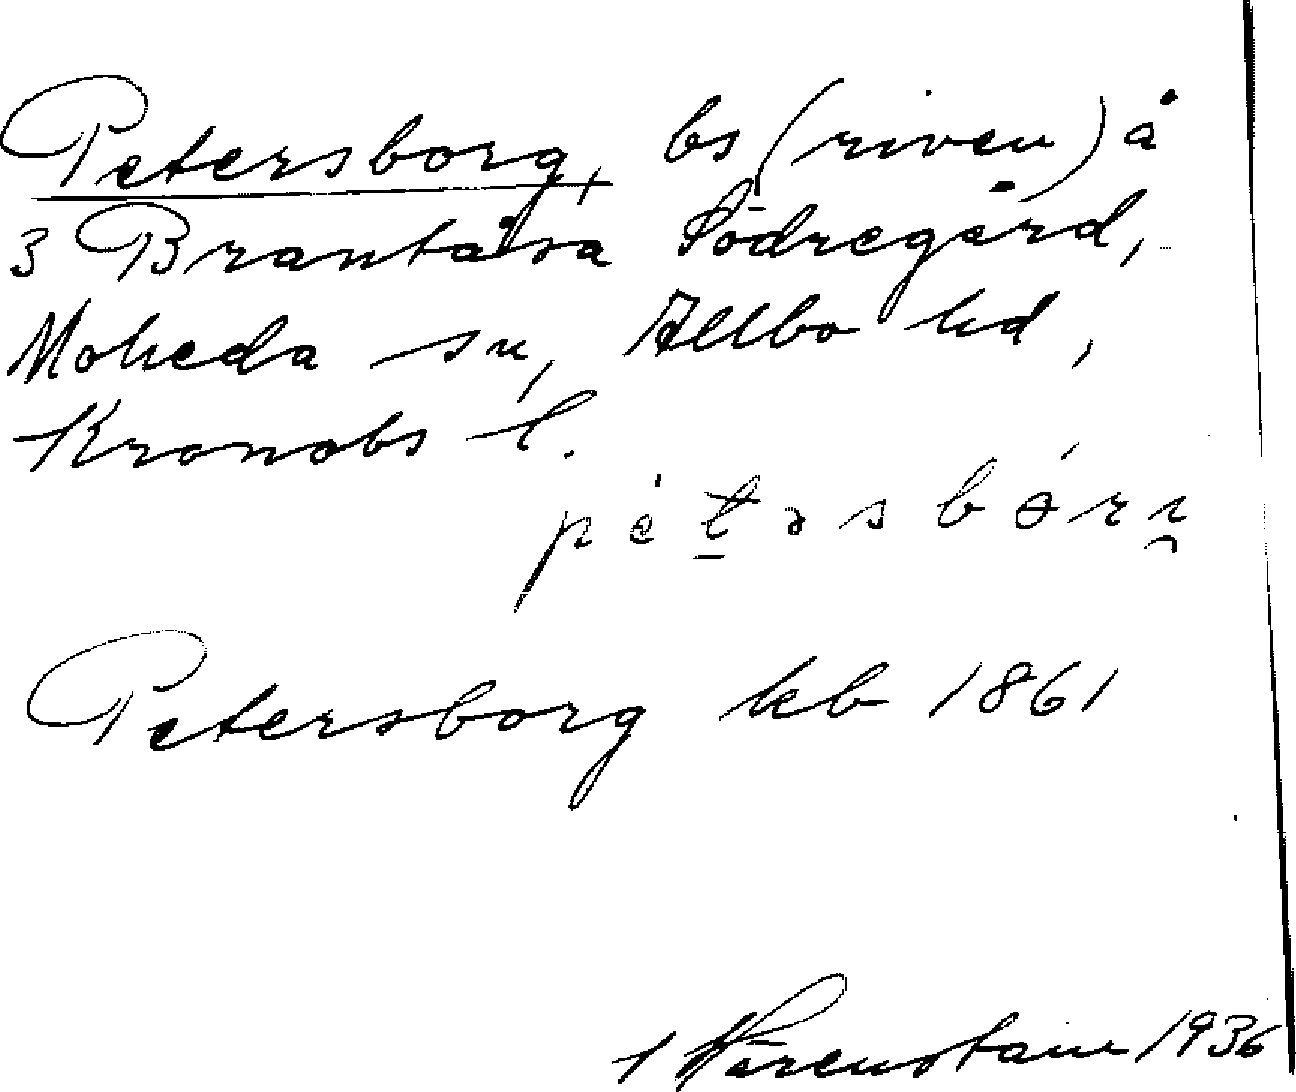 Petersborg, bs (riven) å
3 Brantåsa Södregård,
Moheda sn, Allbo hd,
Kronobs l.
Petersborg kb 1861
1936